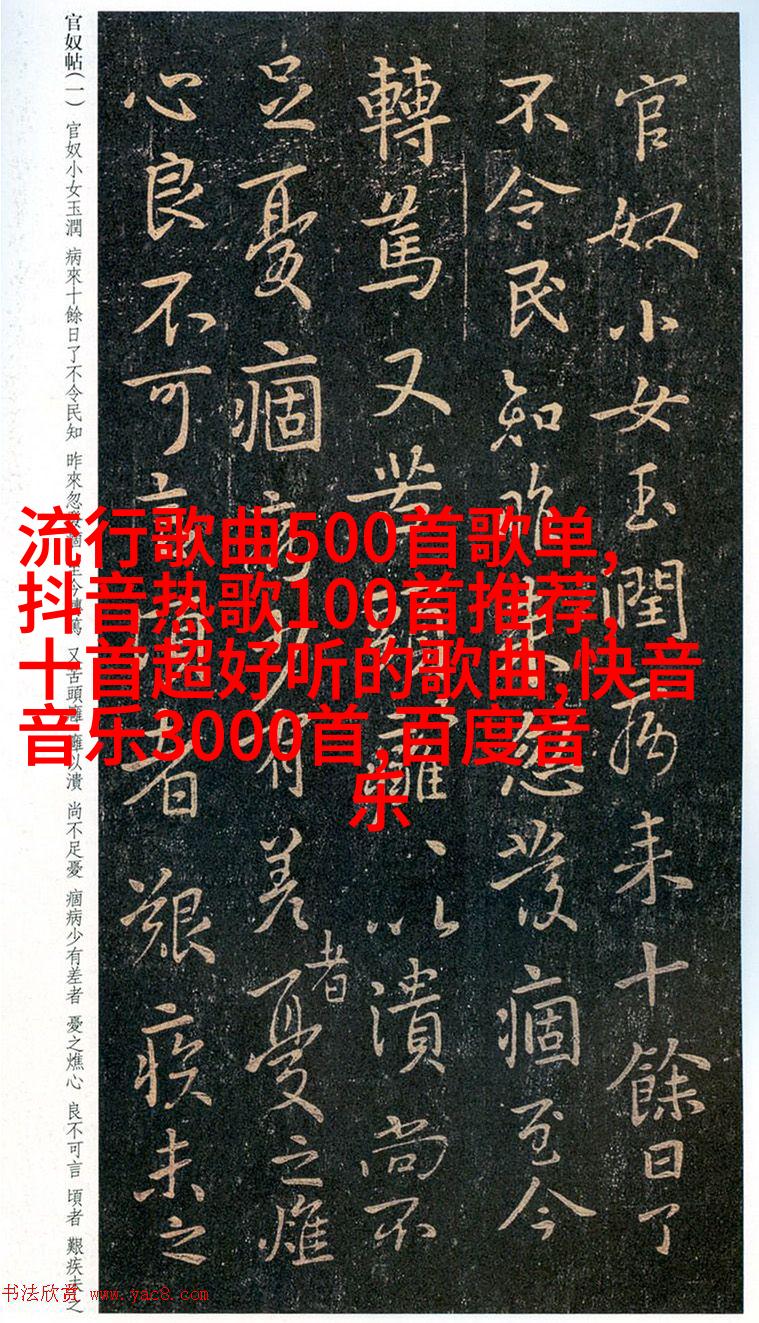 官奴小女玉潤病来十餘日了
不令民知昨来忽發痼至今
轉篤又苦頭癰、以潰尚不
足憂痼病少有差者憂之燋
心良不可言頃者艱疾未之
官奴帖(一) 官奴小女玉潤 病來十餘日了不令民知 昨來忽發痼至今轉篤 又苦頭癰 癰以潰 尚不足憂 痼病少有差者 憂之燋心 良不可言 頃者 艱疾未之
流行歌曲500首歌单,
抖音热歌100首推荐,
十首超好听的歌曲,快音
音乐3000首,百度音
乐
书法欣赏 www.yac8.com